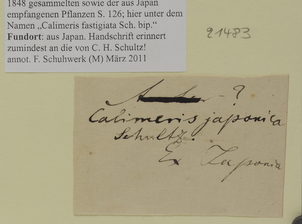 1848 gesammelten sowie der aus Japan
empfangenen Pflanzen S. 126; hier unter dem
Namen „Calimeris fastigiata Sch. bip.“
Fundort: aus Japan. Handschrift erinnert
zumindest an die von C. H. Schultz!
annot. F. Schuhwerk (M) März 2011
21483
?
Calimeris japonica
Schultz.
Ex Japonia